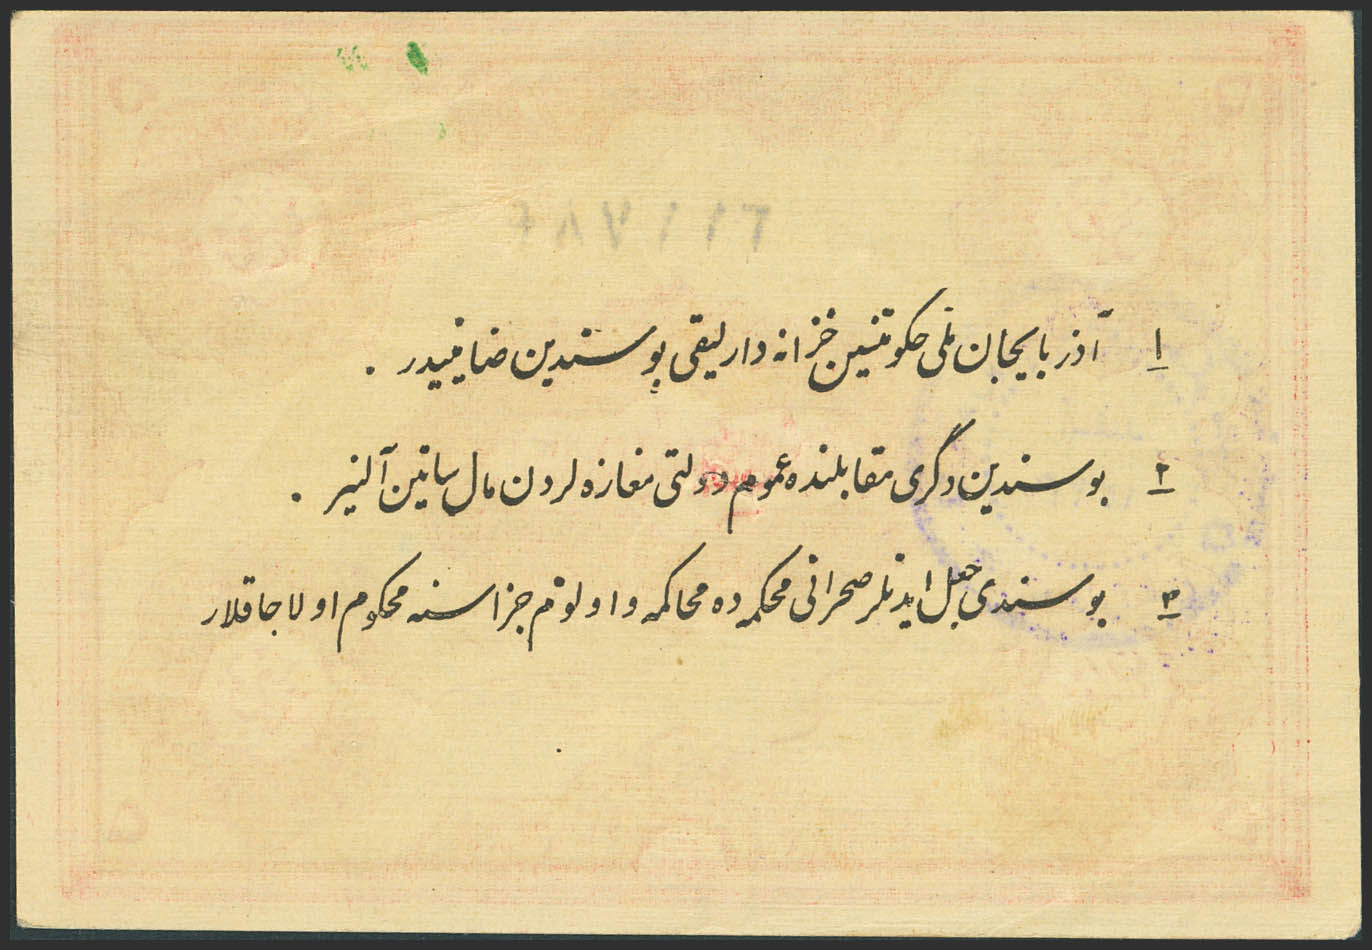 ۱ آذربایجان ملی حکومتنین خزانه دارلیقی بو سندین ضامنیدر .
۲ بو سندین دگری مقابلنده عموم دولتی مغازه لردن مال ساتین آلنیر .
۳ بو سندی جعل ایدنلر صحرائی محکمه ده محاکمه و اولوم جزاسنه محکوم اولاجاقلار